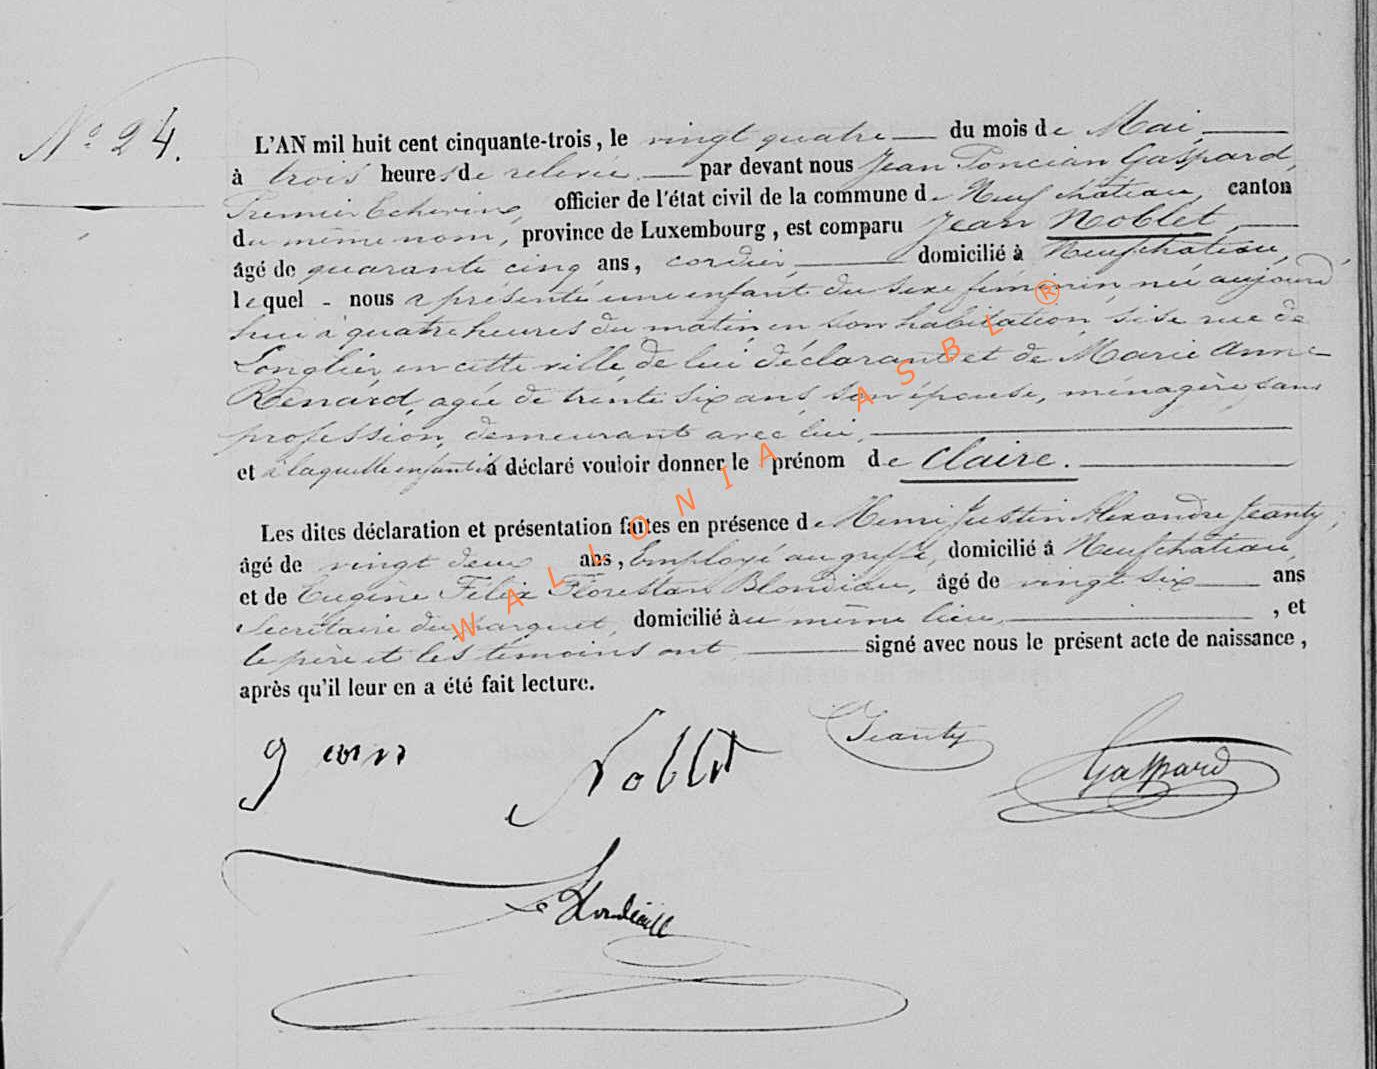 N° 24.
L'AN mil huit cent cinquante-trois, le vingt quatre du mois de Mai,
à trois heures de relevée par devant nous Jean Poncian Gaspard,
Premier Echevin, officier de l'état civil de la commune de Neufchâteau, canton
du même nom, province de Luxembourg, est comparu Jean Noblet,
âgé de quarante cinq ans, cordier, domicilié à Neufchateau,
lequel nous a présenté une enfant du sexe féminin, née aujourd
hui à quatre heures du matin en son habitation, sise rue de
Longlier, en cette ville, de lui déclarant et de Marie Anne
Renard, agée de trente six ans, son épouse, ménagère sans
profession, demeurant avec lui,
et à laquelle enfant il a déclaré vouloir donner le prénom de Claire.
Les dites déclaration et présentation faites en présence de Henri Justin Alexandre Jeanty,
âgé de vingt deux ans, Employé au greffe, domicilié à Neufchateau,
et de Eugène Félix Florestan Blondiau, âgé de vingt six ans
Secrétaire du parquet, domicilié au même lieu, , et
le père et les témoins ont signé avec nous le présent acte de naissance,
après qu'il leur en a été fait lecture.
Jean Noblet Jeanty Gaspard
WALLONIA ASBL ®